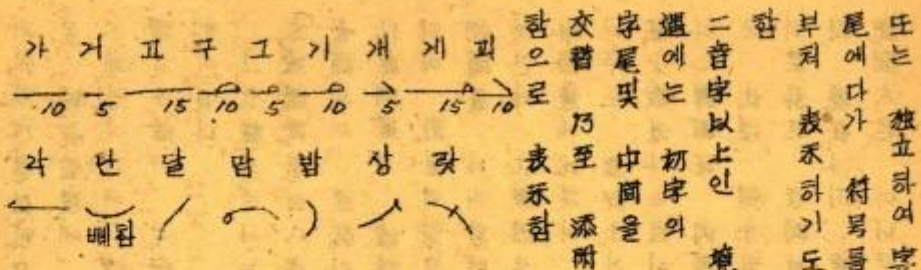 또는 独立하여 字
尾에다가 符号를
부쳐 表示하기도
함
二音字以上인 境
遇에는 初字의
字尾및 中間을
交替 乃至 添附
함으로 表示함
가 거 고 구 그 기 개 게 괴
10 5 15 10 5 10 5 15 10
각 난 달 맘 밥 상 랏